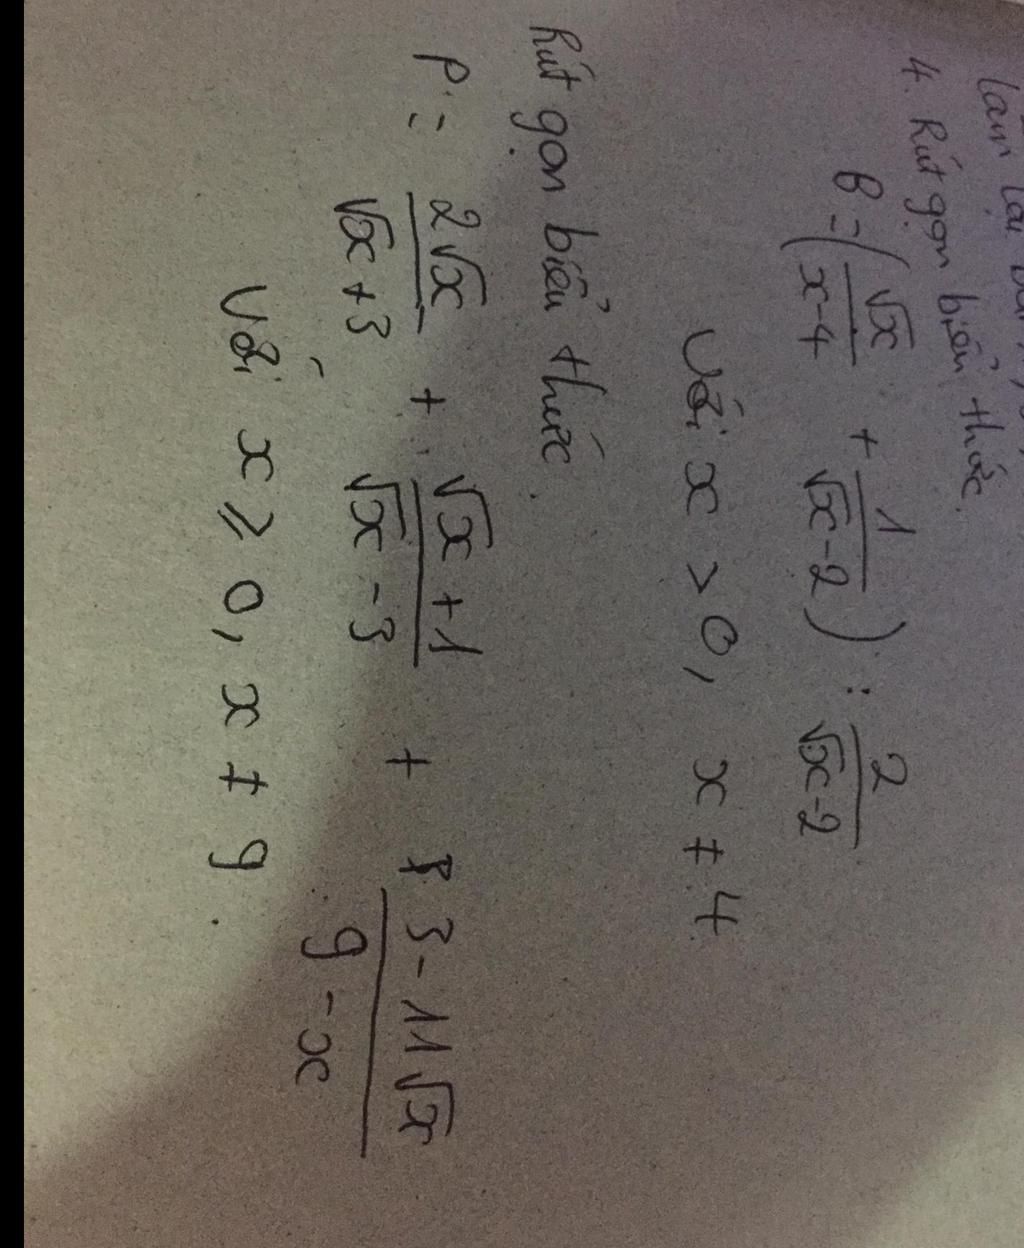 làm lại
4. Rút gọn biểu thức.
B = (√x/(x-4) + 1/(√x-2)) : 2/(√x-2)
Với x > 0, x ≠ 4
Rút gọn biểu thức.
P = 2√x/(√x+3) + (√x+1)/(√x-3) + (3-11√x)/(9-x)
Với x ≥ 0, x ≠ 9.